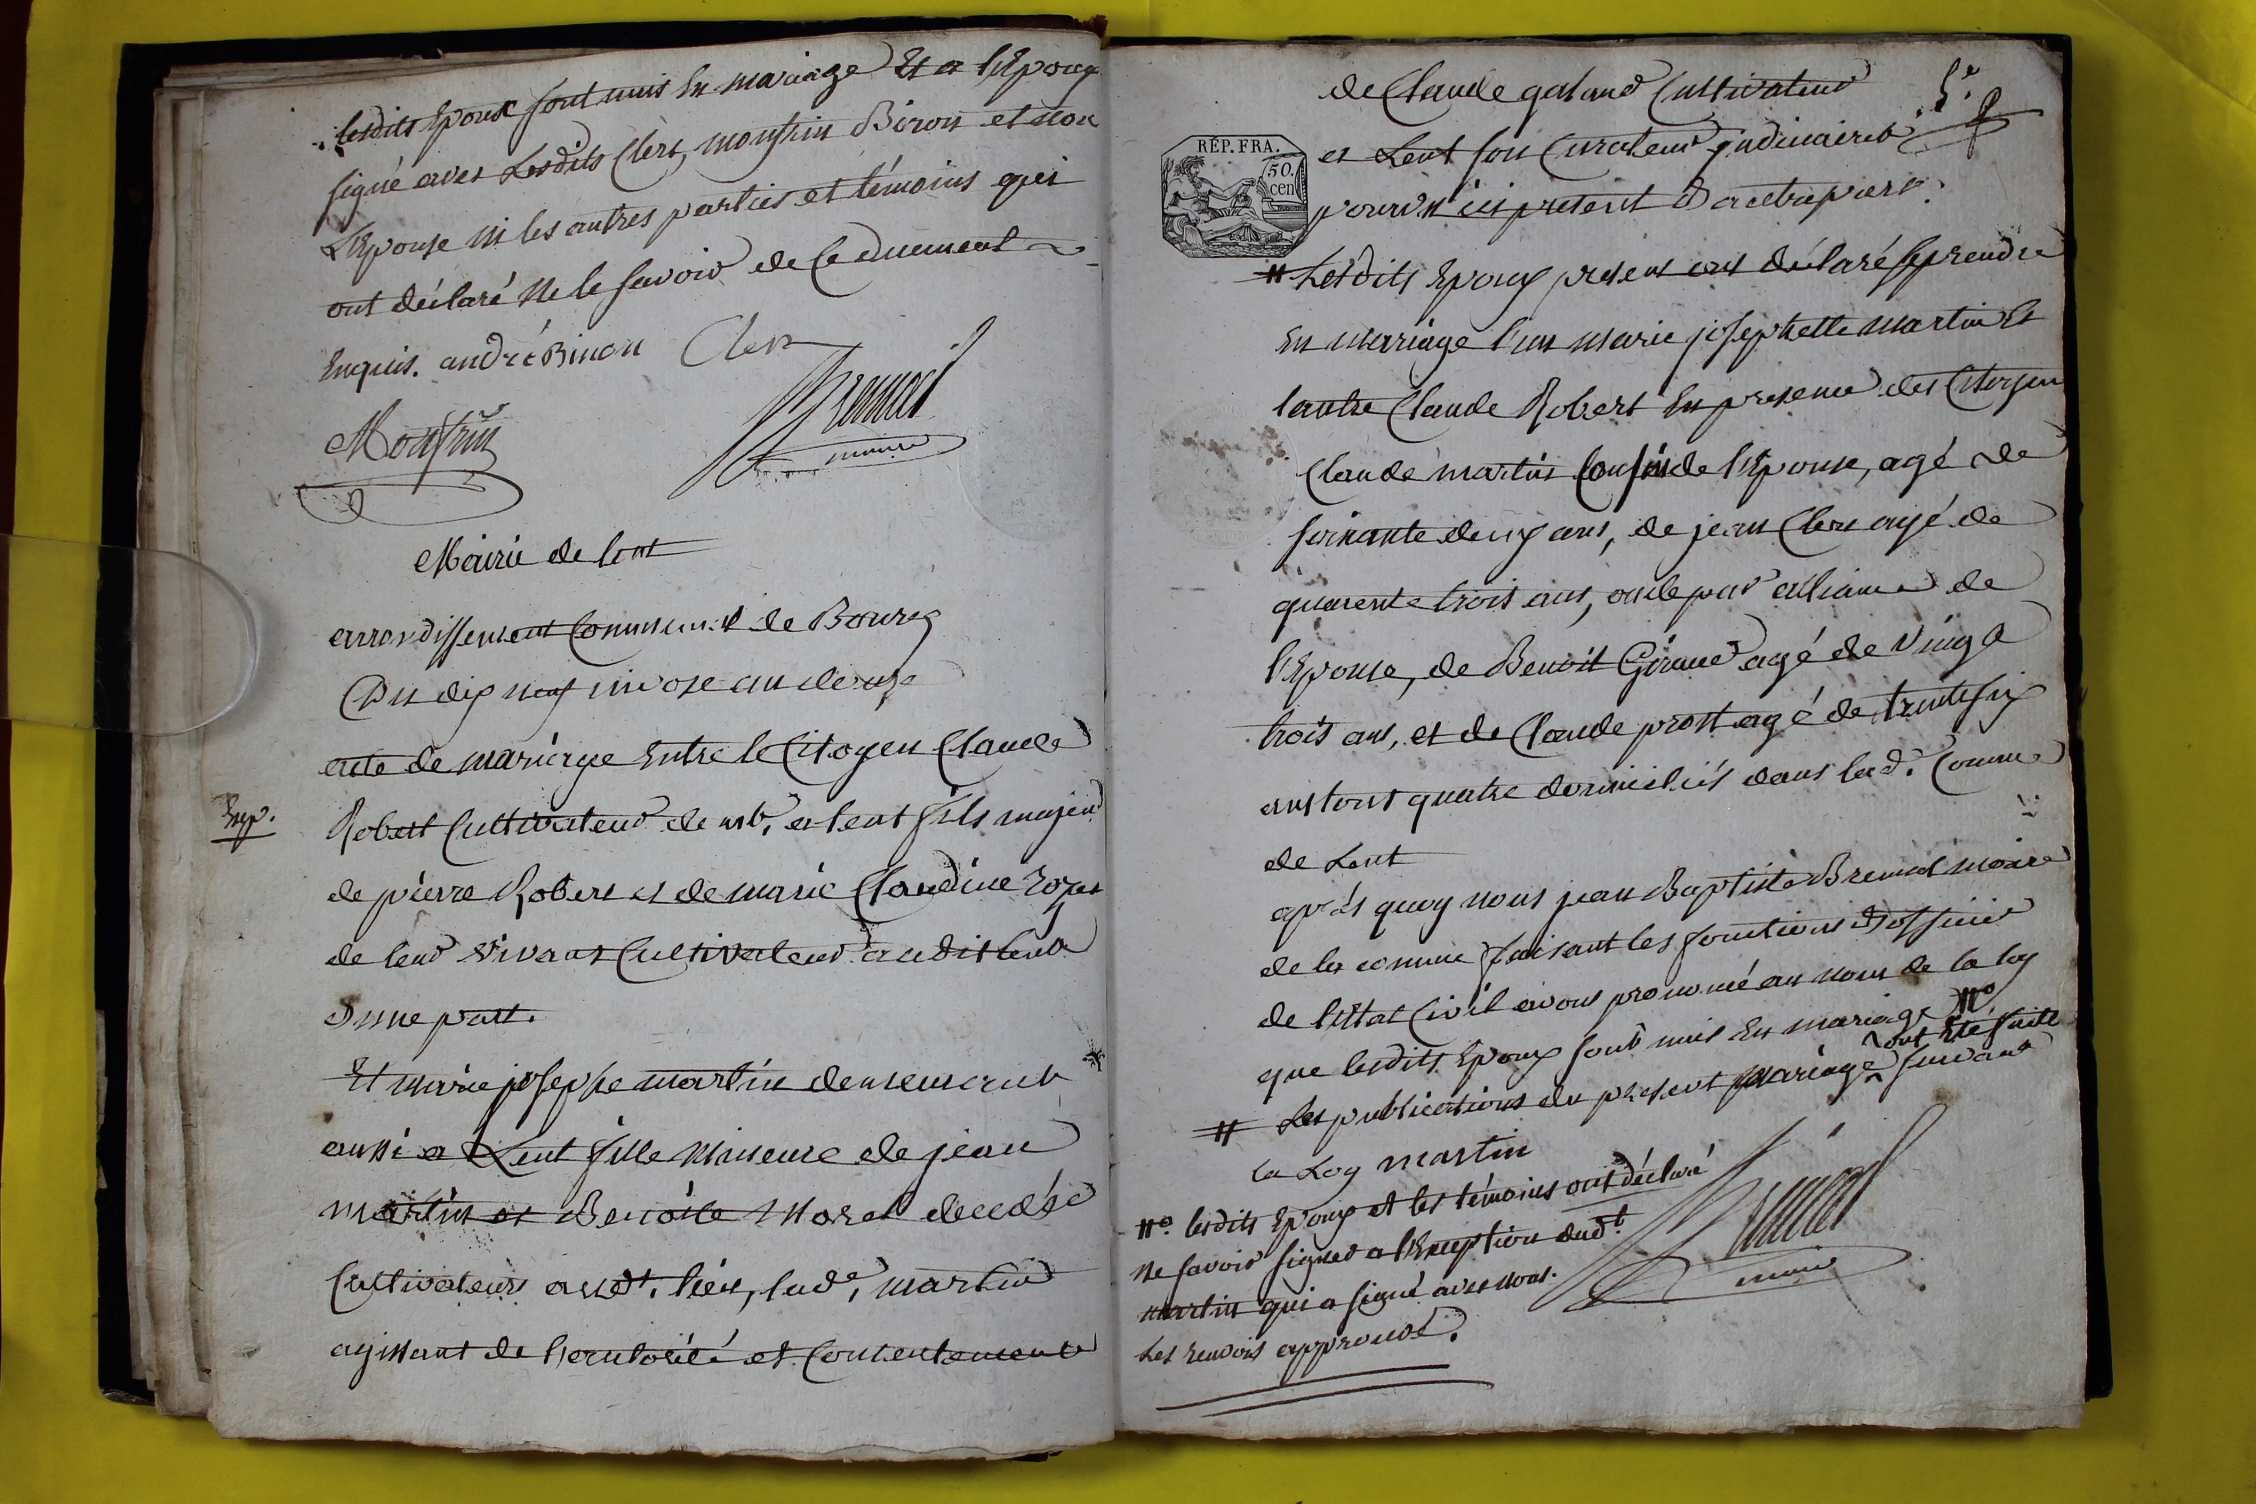 lesdits Epoux sont unis En mariage Et a l'Epoux
signé avec Lesdits Clerc, monfrin Biron et non
L'Epouse ni les autres parties et témoins qui
ont déclaré Ne le savoir de ce duement
Enquis. andré Binon Clerc
Monfrin
Bremod
maire
Mairie de lent
arrondissement Communal de Bourg
Du dix neuf nivose an douze
acte de mariage Entre le Citoyen Claude
Exp.
Robert Cultivateur demt. a lent fils majeur
de pierre Robert et de marie Claudine
de leur vivant Cultivateur audit lent
d'une part.
Et marie josephe martin demeurant
aussi a Lent fille Mineure de jean
martin et Benoite Morel decedés
Cultivateurs audt. lieu, lade. martin
agissant de l'autorité et Consentement
5e
de Claude galand Cultivateur
RÉP. FRA.
50. cen
a Lent son Curateur judiciaire
pourvu ici present d'autre part.
# Lesdits Epoux presens ont déclaré se prendre
En mariage l'un marie josephette martin Et
l'autre Claude Robert En presence des Citoyen
Claude martin Cousin de l'Epouse, agé de
soixante deux ans, de jean Clerc agé de
quarente trois ans, oncle par alliance de
l'Epouse, de Benoit Giraud agé de vingt
trois ans, et de Claude prost agé de trente six
ans tous quatre domiciliés dans lad. Commune
de Lent
après quoy nous jean Baptiste Bremod maire
de la comune faisant les fonctions d'officier
de l'Etat Civil avons prononcé au nom de la loy
que lesdits Epoux sont unis En mariage #o
# Les publications du present mariage ont Eté faite suivant
la Loy martin
#o lesdits Epoux et les témoins ont déclaré
Ne savoir signer a l'Exception dudt.
martin qui a signé avec nous.
Les renvois approuvé.
Bremod
maire